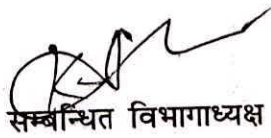 सम्बन्धित विभागाध्यक्ष